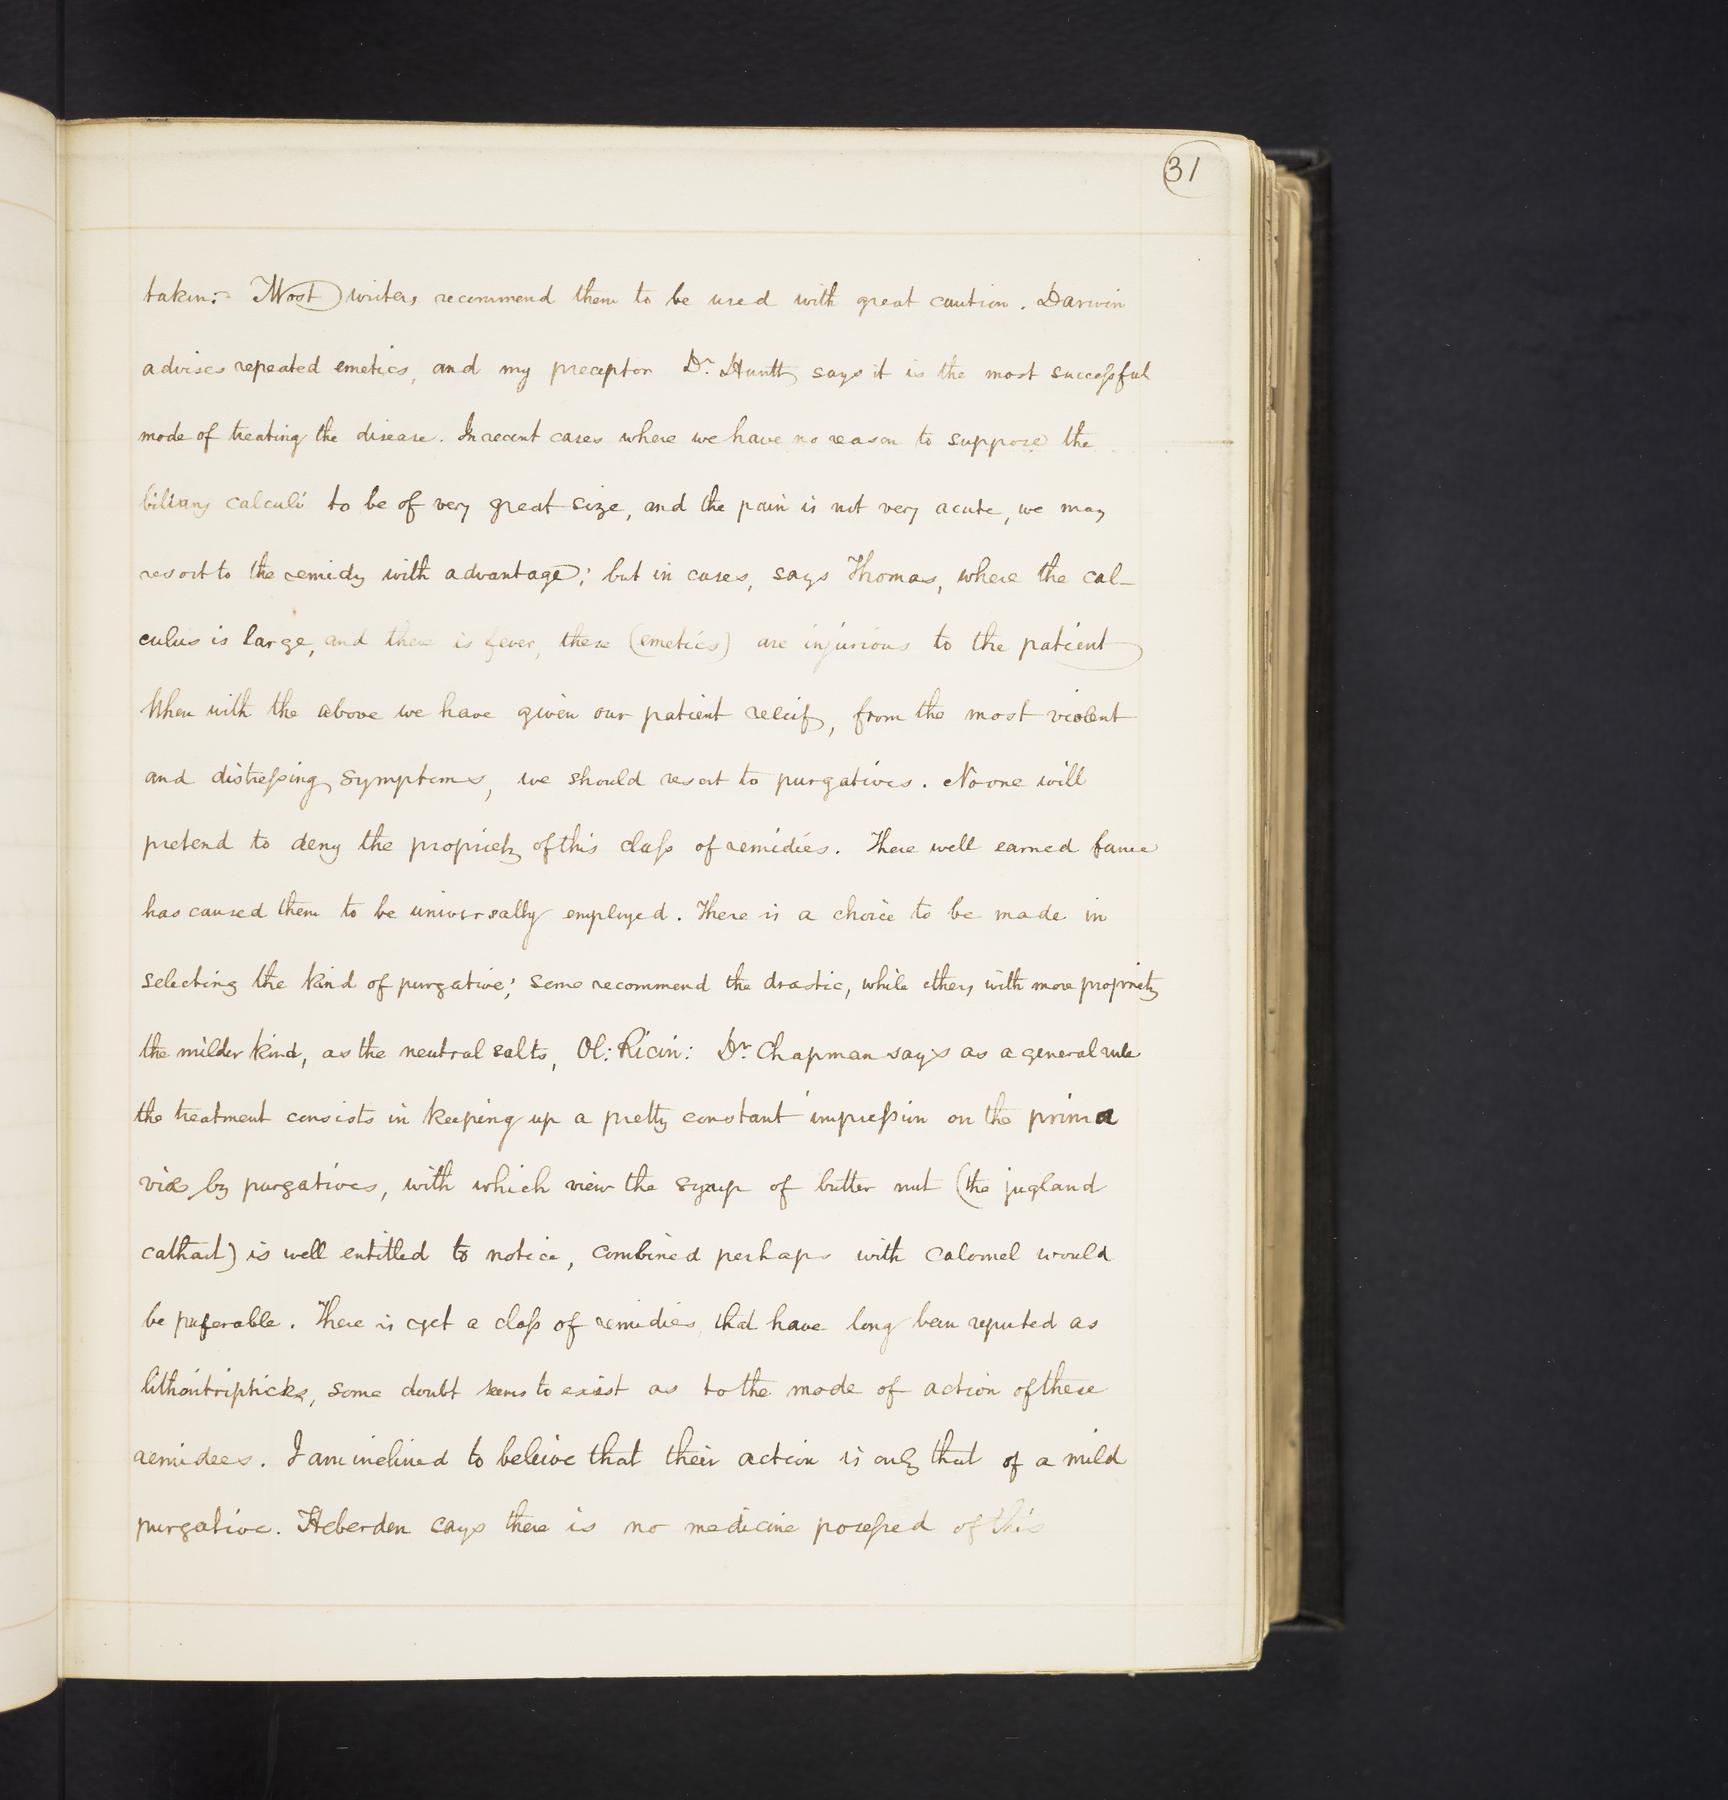 31
taken:- Most writers recommend them to be used with great caution. Darwin
advises repeated emetics, and my preceptor Dr. Huntt says it is the most successful
mode of treating the disease. In recent cases where we have no reason to suppose the
biliary calculi to be of very great size, and the pain is not very acute, we may
resort to the remidy with advantage; but in cases, says Thomas, where the cal-
culus is large, and there is fever, these (emetics) are injurious to the patient
When with the above we have given our patient releif, from the most violent
and distressing symptoms, we should resort to purgatives. No one will
pretend to deny the propriety of this class of remidies. There well earned fame
has caused them to be universally employed. There is a choice to be made in
selecting the kind of purgative; some recommend the drastic, while others with more propriety
the milder kind, as the neutral salts, Ol: Ricin: Dr. Chapman says as a general rule
the treatment consists in keeping up a pretty constant impression on the prima
vias by purgatives, with which view the syrup of butter nut (the jugland
cathart) is well entitled to notice, combined perhaps with calomel would
be preferable. There is yet a class of remidies, that have long been reputed as
lithontripticks, some doubt seems to exist as to the mode of action of these
remidees. I am inclined to beleive that their action is only that of a mild
purgative. Heberden says there is no medicine posessed of this